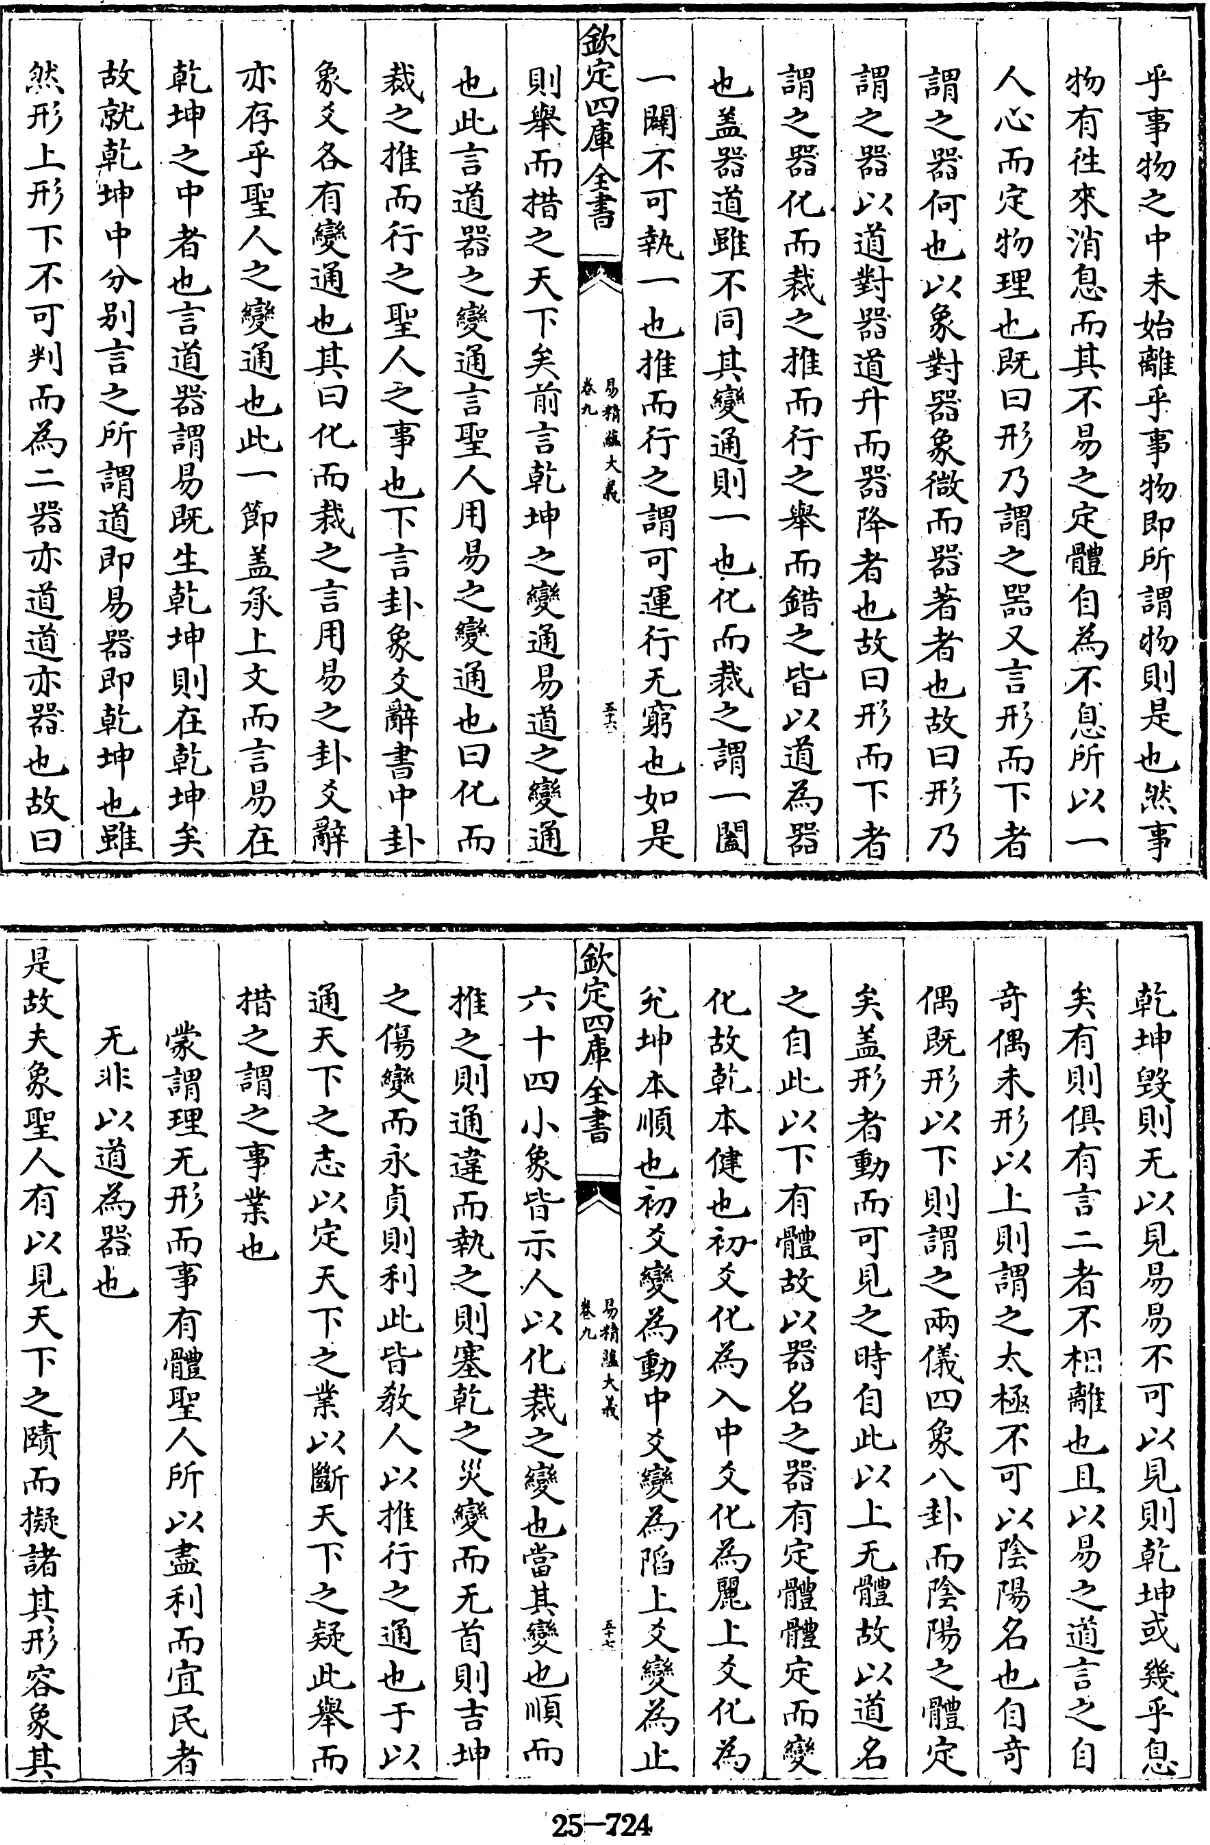 乎事物之中未始離乎事物即所謂物則是也然事
物有往來消息而其不易之定體自為不息所以一
人心而定物理也既曰形乃謂之器又言形而下者
謂之器何也以象對器象微而器著者也故曰形乃
謂之器以道對器道升而器降者也故曰形而下者
謂之器化而裁之推而行之舉而錯之皆以道為器
也盖器道雖不同其變通則一也化而裁之謂一闔
一闢不可執一也推而行之謂可運行无窮也如是
欽定四庫全書
易精蘊大義
卷九
五十六
則舉而措之天下矣前言乾坤之變通易道之變通
也此言道器之變通言聖人用易之變通也曰化而
裁之推而行之聖人之事也下言卦象爻辭書中卦
象爻各有變通也其曰化而裁之言用易之卦爻辭
亦存乎聖人之變通也此一節盖承上文而言易在
乾坤之中者也言道器謂易既生乾坤則在乾坤矣
故就乾坤中分别言之所謂道即易器即乾坤也雖
然形上形下不可判而為二器亦道道亦器也故曰
乾坤毀則无以見易易不可以見則乾坤或幾乎息
矣有則俱有言二者不相離也且以易之道言之自
奇偶未形以上則謂之太極不可以陰陽名也自奇
偶既形以下則謂之兩儀四象八卦而陰陽之體定
矣盖形者動而可見之時自此以上无體故以道名
之自此以下有體故以器名之器有定體體定而變
化故乾本健也初爻化為入中爻化為麗上爻化為
兊坤本順也初爻變為動中爻變為陷上爻變為止
欽定四庫全書
易精蘊大義
卷九
五十七
六十四小象皆示人以化裁之變也當其變也順而
推之則通違而執之則塞乾之災變而无首則吉坤
之傷變而永貞則利此皆教人以推行之通也于以
通天下之志以定天下之業以斷天下之疑此舉而
措之謂之事業也
蒙謂理无形而事有體聖人所以盡利而宜民者
无非以道為器也
是故夫象聖人有以見天下之賾而擬諸其形容象其
25-724